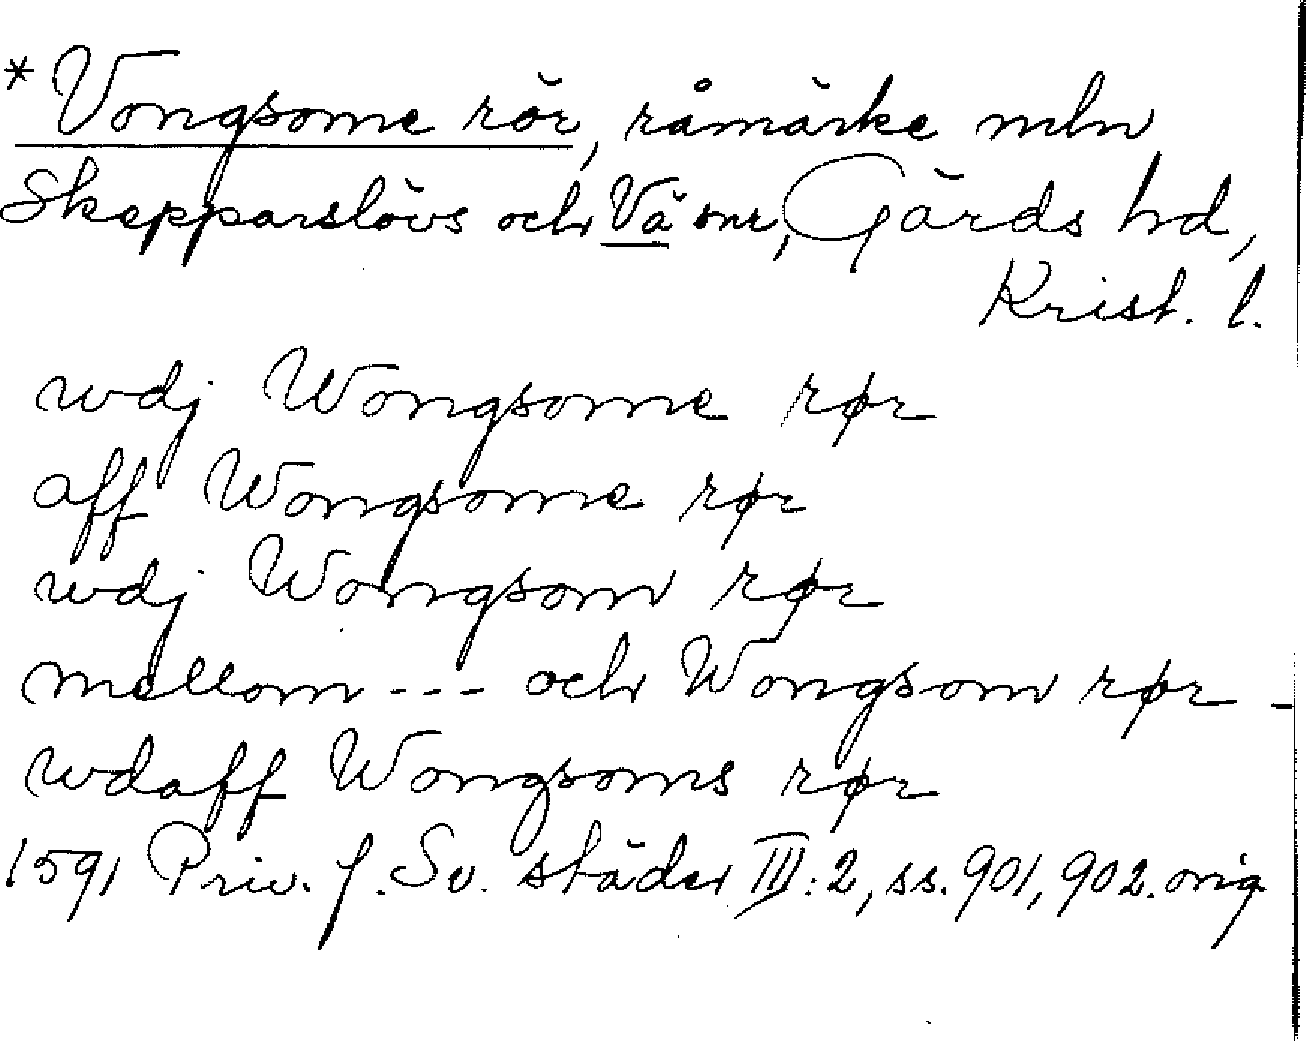 * Vongsome rör, råmärke mln
Skepparslövs och Vä snr, Gärds hd,
Krist. l.
wdj Wongsome rør
aff Wongsome rør
wdj Wongsom rør
mellom --- och Wongsom rør -
wdaff Wongsoms rør
1591 Priv. f. Sv. städer III:2, ss. 901, 902. orig